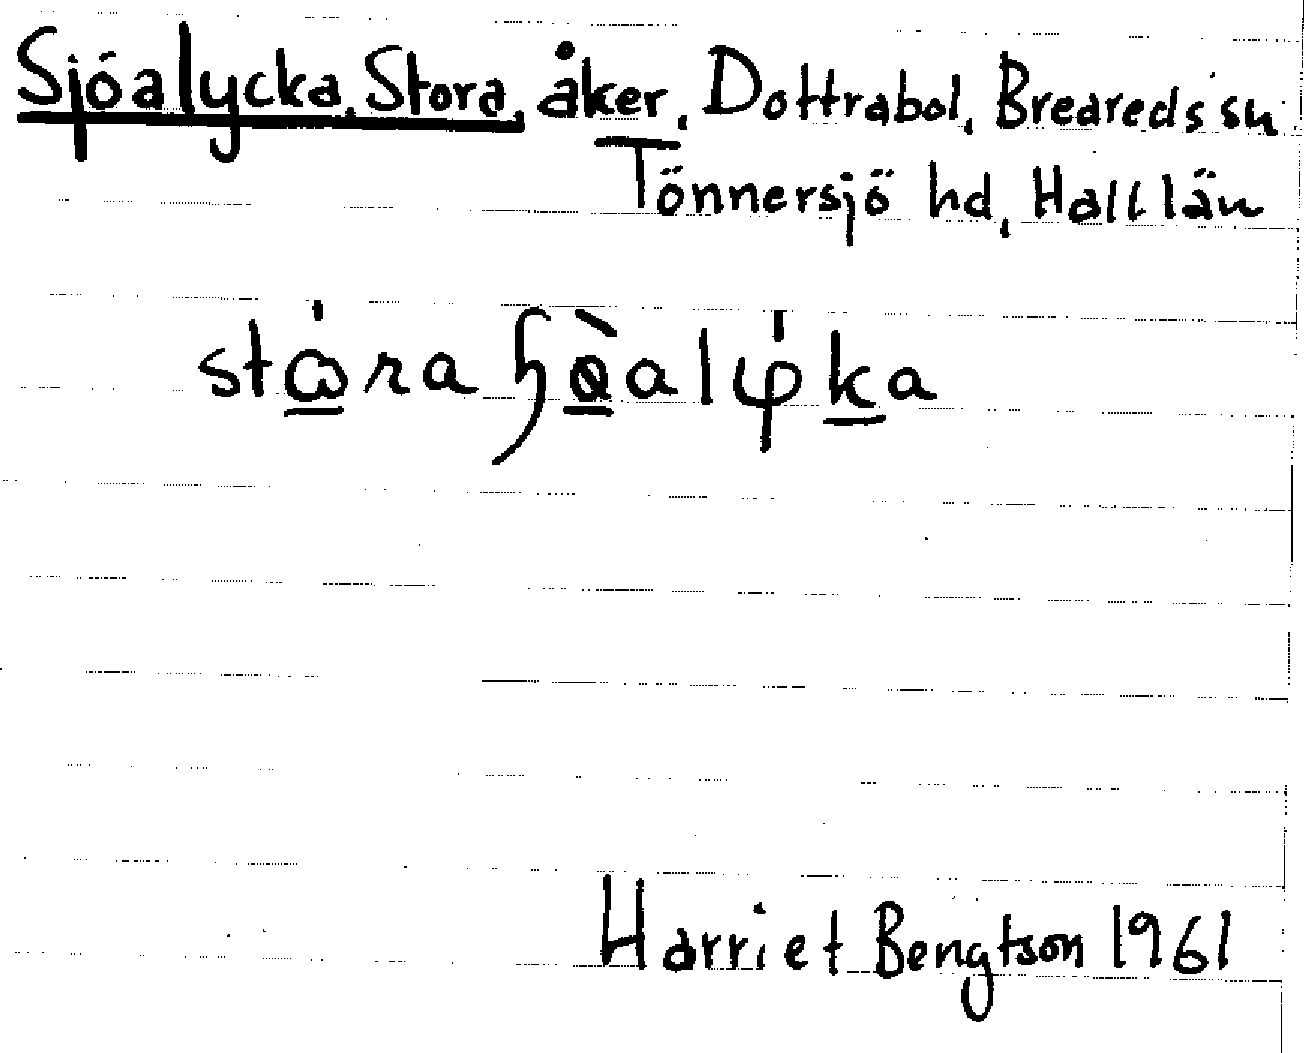 Sjöalycka, Stora, åker, Dottrabol, Breareds sn
Tönnersjö hd, Hall län
Harriet Bengtson 1961